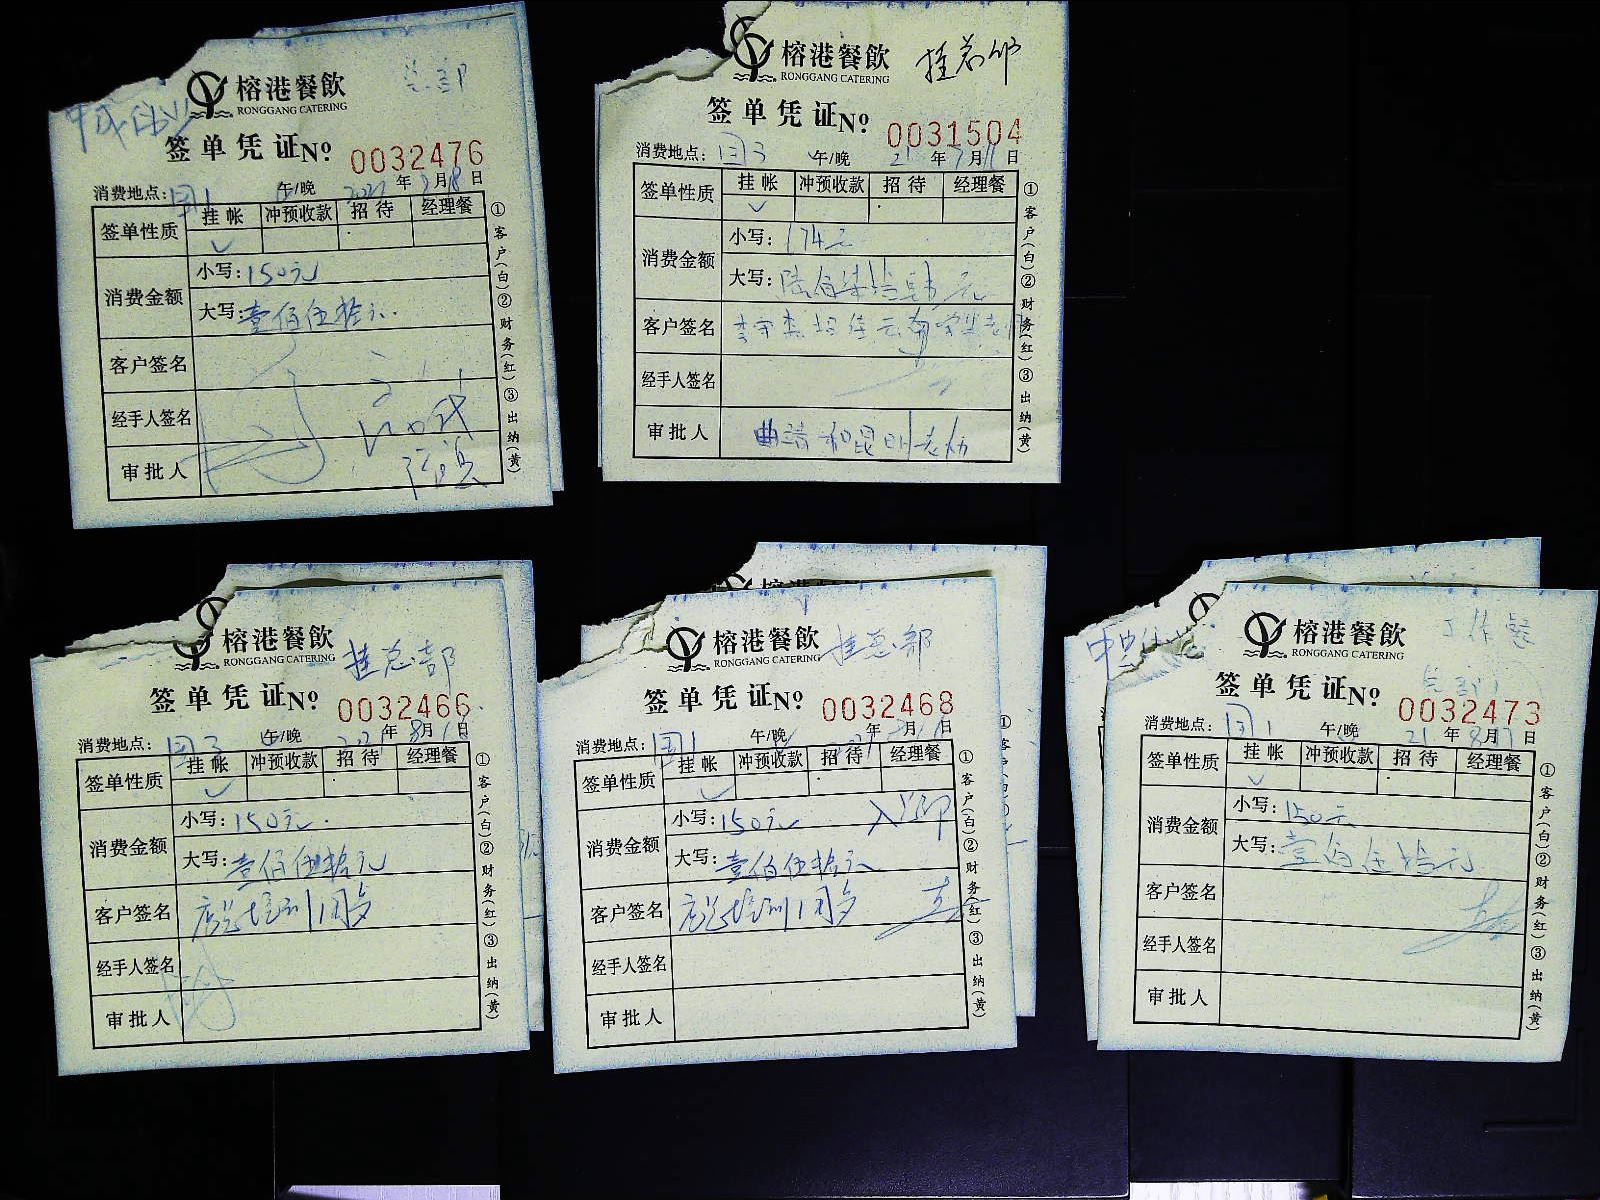 榕港餐飲 总部
RONGGANG CATERING
签单凭证№ 0032476
消费地点: 国1 午/晚 2021年 月18日
签单性质 挂帐 冲预收款 招待 经理餐
消费金额 小写: 150元
大写: 壹佰伍拾元
客户签名
经手人签名
审批人
①客户(白)②财务(红)③出纳(黄)
榕港餐飲 挂总部
RONGGANG CATERING
签单凭证№ 0031504
消费地点: 国3 午/晚 21年 月 日
签单性质 挂帐 冲预收款 招待 经理餐
消费金额 小写: 174元
大写:
客户签名
经手人签名
审批人 曲靖和昆明老幼
①客户(白)②财务(红)③出纳(黄)
榕港餐飲 挂总部
RONGGANG CATERING
签单凭证№ 0032466
消费地点: 国3 午/晚 2021年8月 日
签单性质 挂帐 冲预收款 招待 经理餐
消费金额 小写: 150元
大写: 壹佰伍拾元
客户签名 店总培训
经手人签名
审批人
①客户(白)②财务(红)③出纳(黄)
榕港餐飲
榕港餐飲 挂总部
RONGGANG CATERING
签单凭证№ 0032468
消费地点: 国1 午/晚 年 月 日
签单性质 挂帐 冲预收款 招待 经理餐
消费金额 小写: 150元
大写: 壹佰伍拾元
客户签名 店总培训
经手人签名
审批人
①客户(白)②财务(红)③出纳(黄)
榕港餐飲 工作餐
RONGGANG CATERING
总部
签单凭证№ 0032473
消费地点: 国1 午/晚 21年8月17日
签单性质 挂帐 冲预收款 招待 经理餐
消费金额 小写: 150元
大写: 壹佰伍拾元
客户签名
经手人签名
审批人
①客户(白)②财务(红)③出纳(黄)